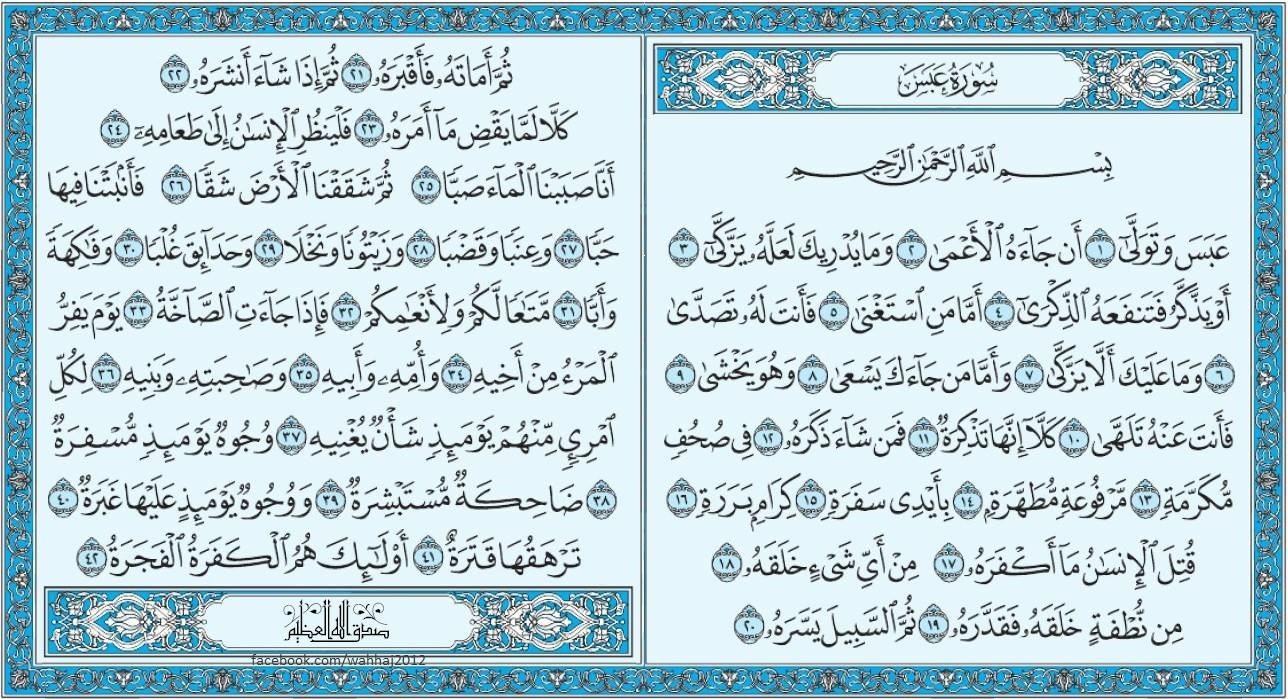 سُورَةُ عَبَسَ
بِسْمِ ٱللَّهِ ٱلرَّحْمَٰنِ ٱلرَّحِيمِ
عَبَسَ وَتَوَلَّىٰٓ ١ أَن جَآءَهُ ٱلْأَعْمَىٰ ٢ وَمَا يُدْرِيكَ لَعَلَّهُۥ يَزَّكَّىٰٓ ٣
أَوْ يَذَّكَّرُ فَتَنفَعَهُ ٱلذِّكْرَىٰٓ ٤ أَمَّا مَنِ ٱسْتَغْنَىٰ ٥ فَأَنتَ لَهُۥ تَصَدَّىٰ
٦ وَمَا عَلَيْكَ أَلَّا يَزَّكَّىٰ ٧ وَأَمَّا مَن جَآءَكَ يَسْعَىٰ ٨ وَهُوَ يَخْشَىٰ ٩
فَأَنتَ عَنْهُ تَلَهَّىٰ ١٠ كَلَّآ إِنَّهَا تَذْكِرَةٌ ١١ فَمَن شَآءَ ذَكَرَهُۥ ١٢ فِى صُحُفٍ
مُّكَرَّمَةٍ ١٣ مَّرْفُوعَةٍ مُّطَهَّرَةٍۭ ١٤ بِأَيْدِى سَفَرَةٍ ١٥ كِرَامٍۭ بَرَرَةٍ ١٦
قُتِلَ ٱلْإِنسَٰنُ مَآ أَكْفَرَهُۥ ١٧ مِنْ أَىِّ شَىْءٍ خَلَقَهُۥ ١٨
مِن نُّطْفَةٍ خَلَقَهُۥ فَقَدَّرَهُۥ ١٩ ثُمَّ ٱلسَّبِيلَ يَسَّرَهُۥ ٢٠
ثُمَّ أَمَاتَهُۥ فَأَقْبَرَهُۥ ٢١ ثُمَّ إِذَا شَآءَ أَنشَرَهُۥ ٢٢
كَلَّا لَمَّا يَقْضِ مَآ أَمَرَهُۥ ٢٣ فَلْيَنظُرِ ٱلْإِنسَٰنُ إِلَىٰ طَعَامِهِۦٓ ٢٤
أَنَّا صَبَبْنَا ٱلْمَآءَ صَبًّا ٢٥ ثُمَّ شَقَقْنَا ٱلْأَرْضَ شَقًّا ٢٦ فَأَنۢبَتْنَا فِيهَا
حَبًّا ٢٧ وَعِنَبًا وَقَضْبًا ٢٨ وَزَيْتُونًا وَنَخْلًا ٢٩ وَحَدَآئِقَ غُلْبًا ٣٠ وَفَٰكِهَةً
وَأَبًّا ٣١ مَّتَٰعًا لَّكُمْ وَلِأَنْعَٰمِكُمْ ٣٢ فَإِذَا جَآءَتِ ٱلصَّآخَّةُ ٣٣ يَوْمَ يَفِرُّ
ٱلْمَرْءُ مِنْ أَخِيهِ ٣٤ وَأُمِّهِۦ وَأَبِيهِ ٣٥ وَصَٰحِبَتِهِۦ وَبَنِيهِ ٣٦ لِكُلِّ
ٱمْرِئٍ مِّنْهُمْ يَوْمَئِذٍ شَأْنٌ يُغْنِيهِ ٣٧ وُجُوهٌ يَوْمَئِذٍ مُّسْفِرَةٌ
٣٨ ضَاحِكَةٌ مُّسْتَبْشِرَةٌ ٣٩ وَوُجُوهٌ يَوْمَئِذٍ عَلَيْهَا غَبَرَةٌ ٤٠
تَرْهَقُهَا قَتَرَةٌ ٤١ أُو۟لَٰٓئِكَ هُمُ ٱلْكَفَرَةُ ٱلْفَجَرَةُ ٤٢
صدق الله العظيم
facebook.com/wahhaj2012